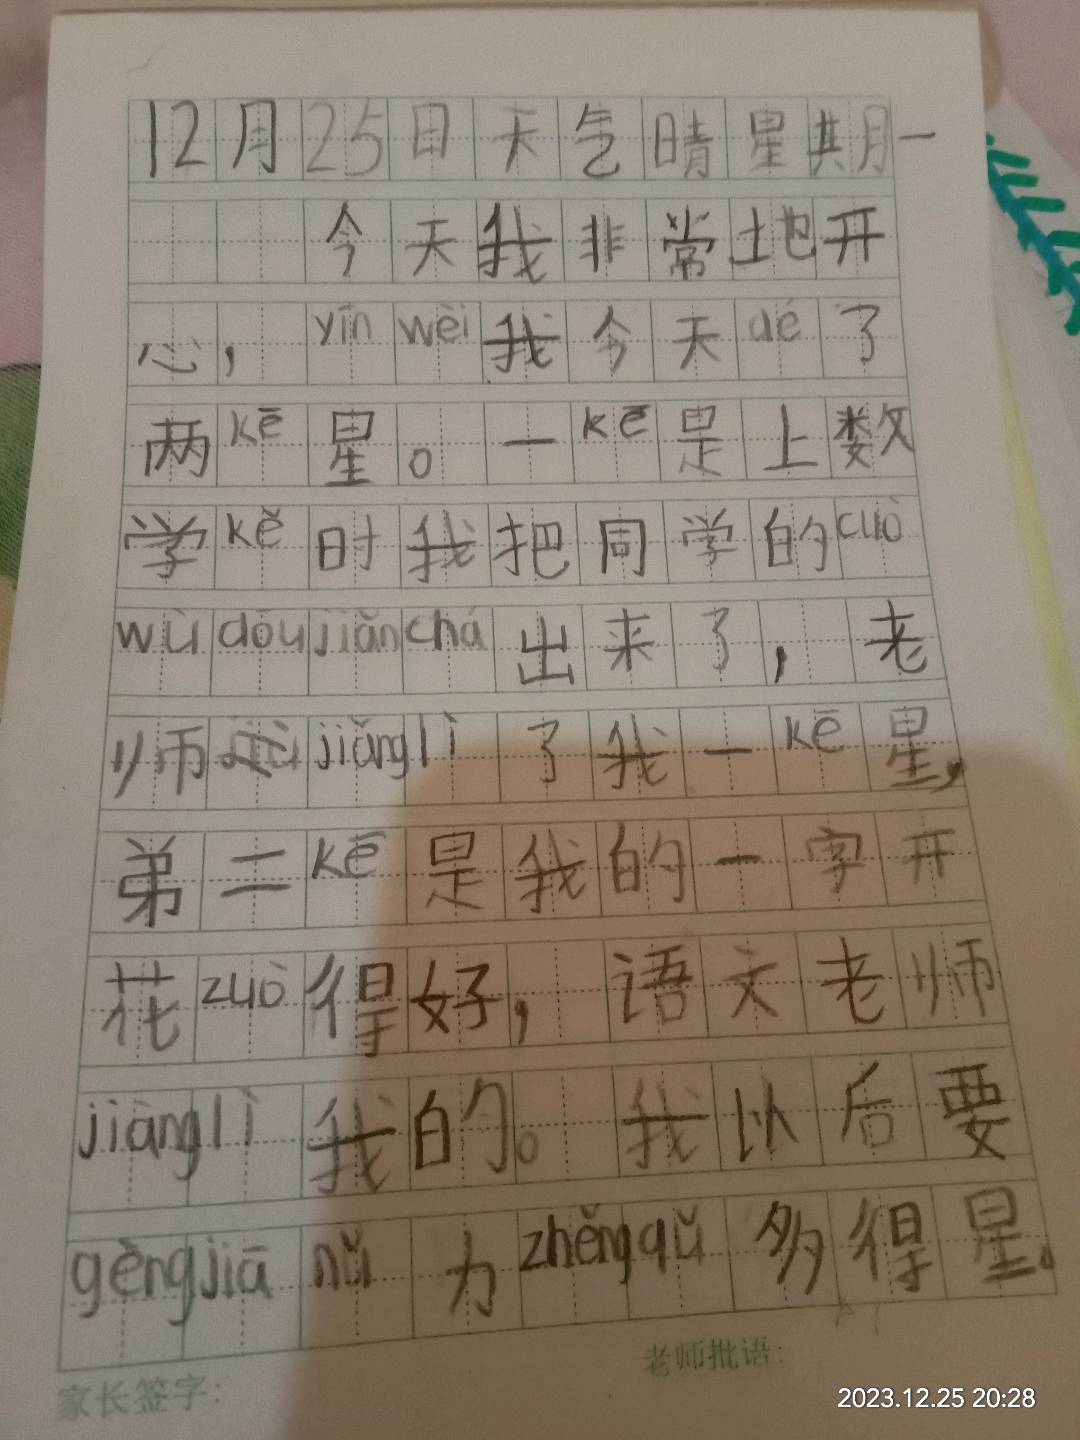 12月25日天气晴星期一
今天我非常地开
心，yīn wèi我今天dé了
两kē星。一kē是上数
学kě时我把同学的cuò
wù dōu jiǎn chá出来了，老
师jiǎng lì了我一kē星，
弟二kē是我的一字开
花zuò得好，语文老师
jiàng lì我的。我以后要
gèng jiā nǔ力zhěng qǔ多得星。
家长签字：
老师批语：
2023.12.25 20:28